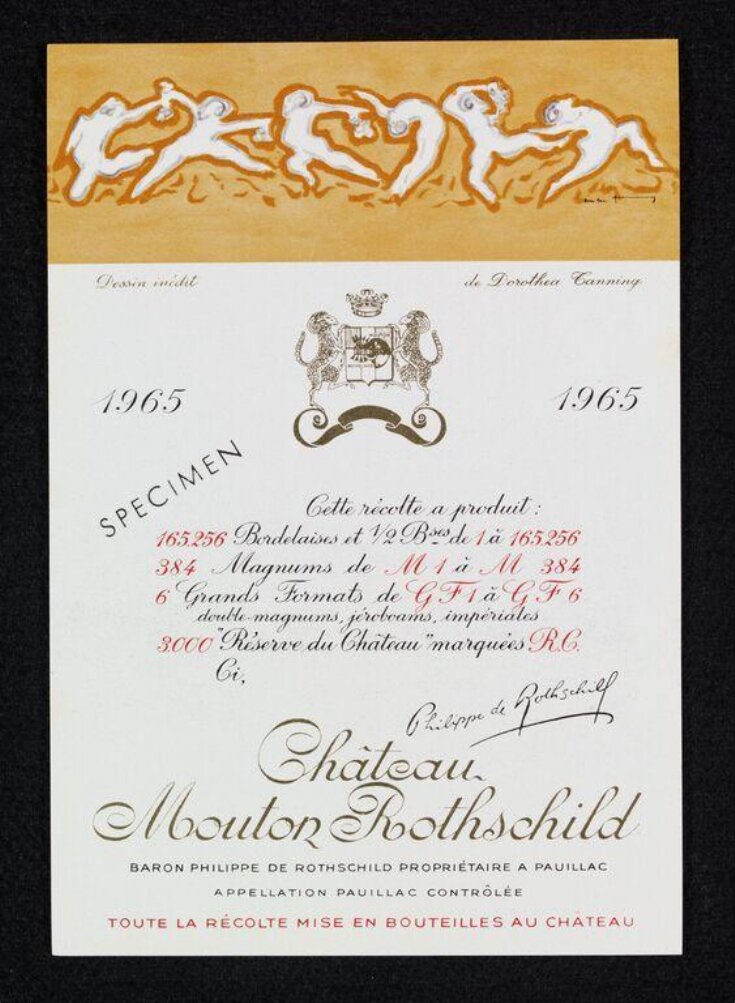 Dessin inédit de Dorothea Tanning
1965 1965
SPECIMEN
Cette récolte a produit :
165.256 Bordelaises et 1/2 Bses de 1 à 165.256
384 Magnums de M 1 à M 384
6 Grands Formats de G F 1 à G F 6
double-magnums, jéroboams, impériales
3.000 "Réserve du Château" marquées R.C.
Ci,
Philippe de Rothschild
Château
Mouton Rothschild
BARON PHILIPPE DE ROTHSCHILD PROPRIÉTAIRE A PAUILLAC
APPELLATION PAUILLAC CONTRÔLÉE
TOUTE LA RÉCOLTE MISE EN BOUTEILLES AU CHÂTEAU